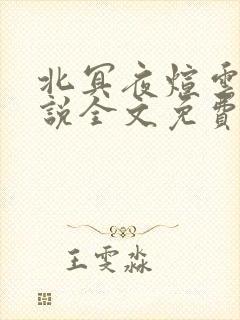 北冥夜煊雲
說全文免費
王雯淼